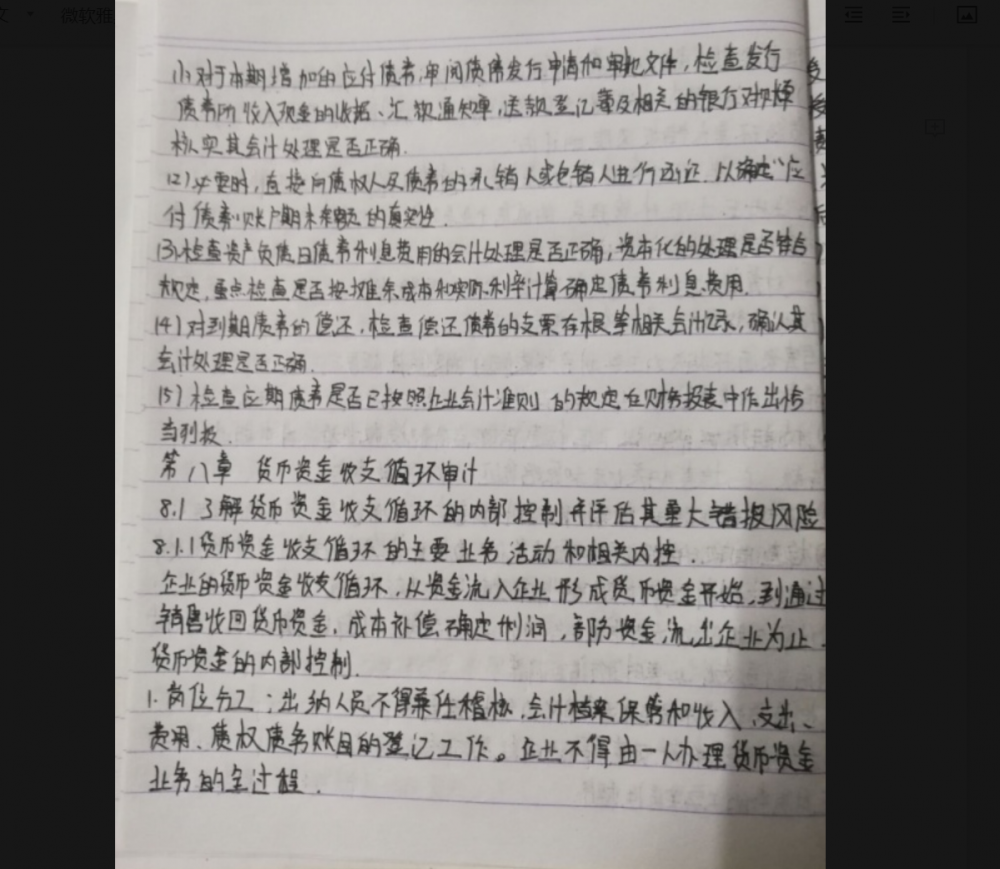 微软雅
(1) 对于本期增加的应付债券,审阅债券发行申请和审批文件,检查发行
债券所收入现金的收据、汇款通知单,送款登记簿及相关的银行对账单
核实其会计处理是否正确.
(2) 必要时,直接向债权人及债券的承销人或包销人进行函证.以确定"应
付债券"账户期末余额的真实性.
(3) 检查资产负债日债券利息费用的会计处理是否正确,资本化的处理是否符合
规定,重点检查是否按摊余成本和实际利率计算确定债券利息费用.
(4) 对到期债券的偿还,检查偿还债券的支票存根等相关会计记录,确认其
会计处理是否正确.
(5) 检查应期债券是否已按照企业会计准则的规定在财务报表中作出恰
当列报.
第八章 货币资金收支循环审计
8.1 了解货币资金收支循环的内部控制并评估其重大错报风险
8.1.1货币资金收支循环的主要业务活动和相关内控.
企业的货币资金收支循环,从资金流入企业形成货币资金开始,到通过
销售收回货币资金,成本补偿确定利润,部分资金流出企业为止
货币资金的内部控制.
1.岗位分工:出纳人员不得兼任稽核,会计档案保管和收入、支出、
费用、债权债务账目的登记工作。企业不得由一人办理货币资金
业务的全过程.